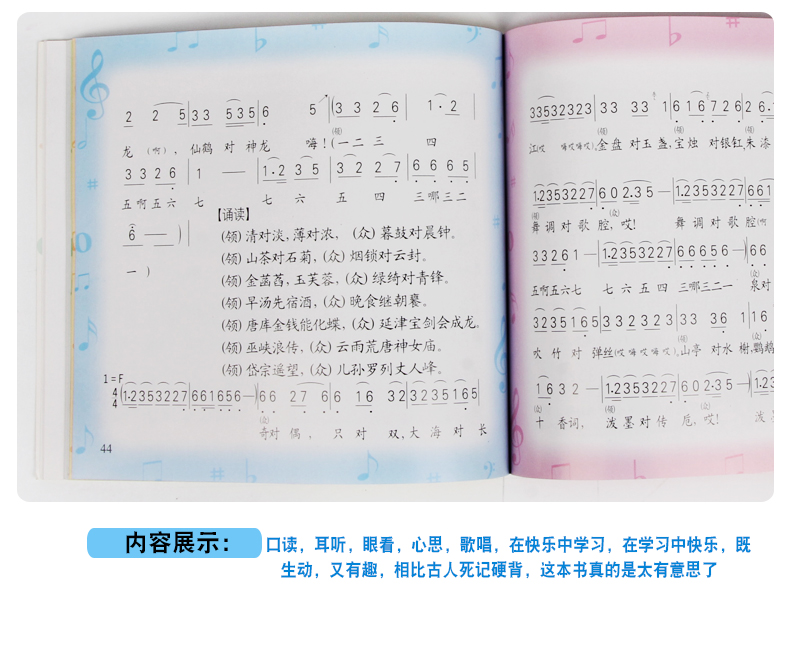 2 2 5 | 3 3 5 3 5 | 6 5 | (3 3 2 6 1·2 |
龙(啊),仙鹤 对 神龙 嗨!(一二三 四
(领)
3 3 2 6 | 1 — | 1·2 3 5 | 3 2 2 7 | 6 6 6 5 |
五啊五六 七 七 六 五 四 三哪三二
6 — ) |
一 )
【诵读】
(领)清对淡,薄对浓, (众)暮鼓对晨钟。
(领)山茶对石菊,(众)烟锁对云封。
(领)金菡萏,玉芙蓉,(众)绿绮对青锋。
(领)早汤先宿酒,(众)晚食继朝饔。
(领)唐库金钱能化蝶,(众)延津宝剑会成龙。
(领)巫峡浪传,(众)云雨荒唐神女庙。
(领)岱宗遥望,(众)儿孙罗列丈人峰。
1=F
4/4 (1·2353227 | 661656—) | 66 27 6 | 6 16 32 | 3235165 |
(众)
奇对 偶, 只 对 双,大 海 对 长
44
33532323 | 33 33 1 | 616726 | 26·
(领) (众) (领)
江(哎 嗨哎嗨哎),金盘 对玉 盏,宝烛 对银缸,朱漆
1·2353227 | 60 2·35 — | 1·2353227 | 661
(领) (众)
舞 调 对 歌 腔,哎! 舞 调 对 歌 腔(啊
33261 — | 1·2353227 | 66656 — ) | 66
(众)
五啊五六七 七 六 五 四 三哪三二一 泉对
3235165 | 332323 | 33 36 1 | 16
(领) (众)
吹 竹 对 弹丝(哎 嗨哎 嗨哎),山亭 对水 榭,鹦鹉
1632 — | 1·2353227 | 60 2·35 — | 1·235
(众) (领) (众)
十 香词, 泼 墨 对 传 卮,哎! 泼 墨
内容展示:
口读,耳听,眼看,心思,歌唱,在快乐中学习,在学习中快乐,既
生动,又有趣,相比古人死记硬背,这本书真的是太有意思了